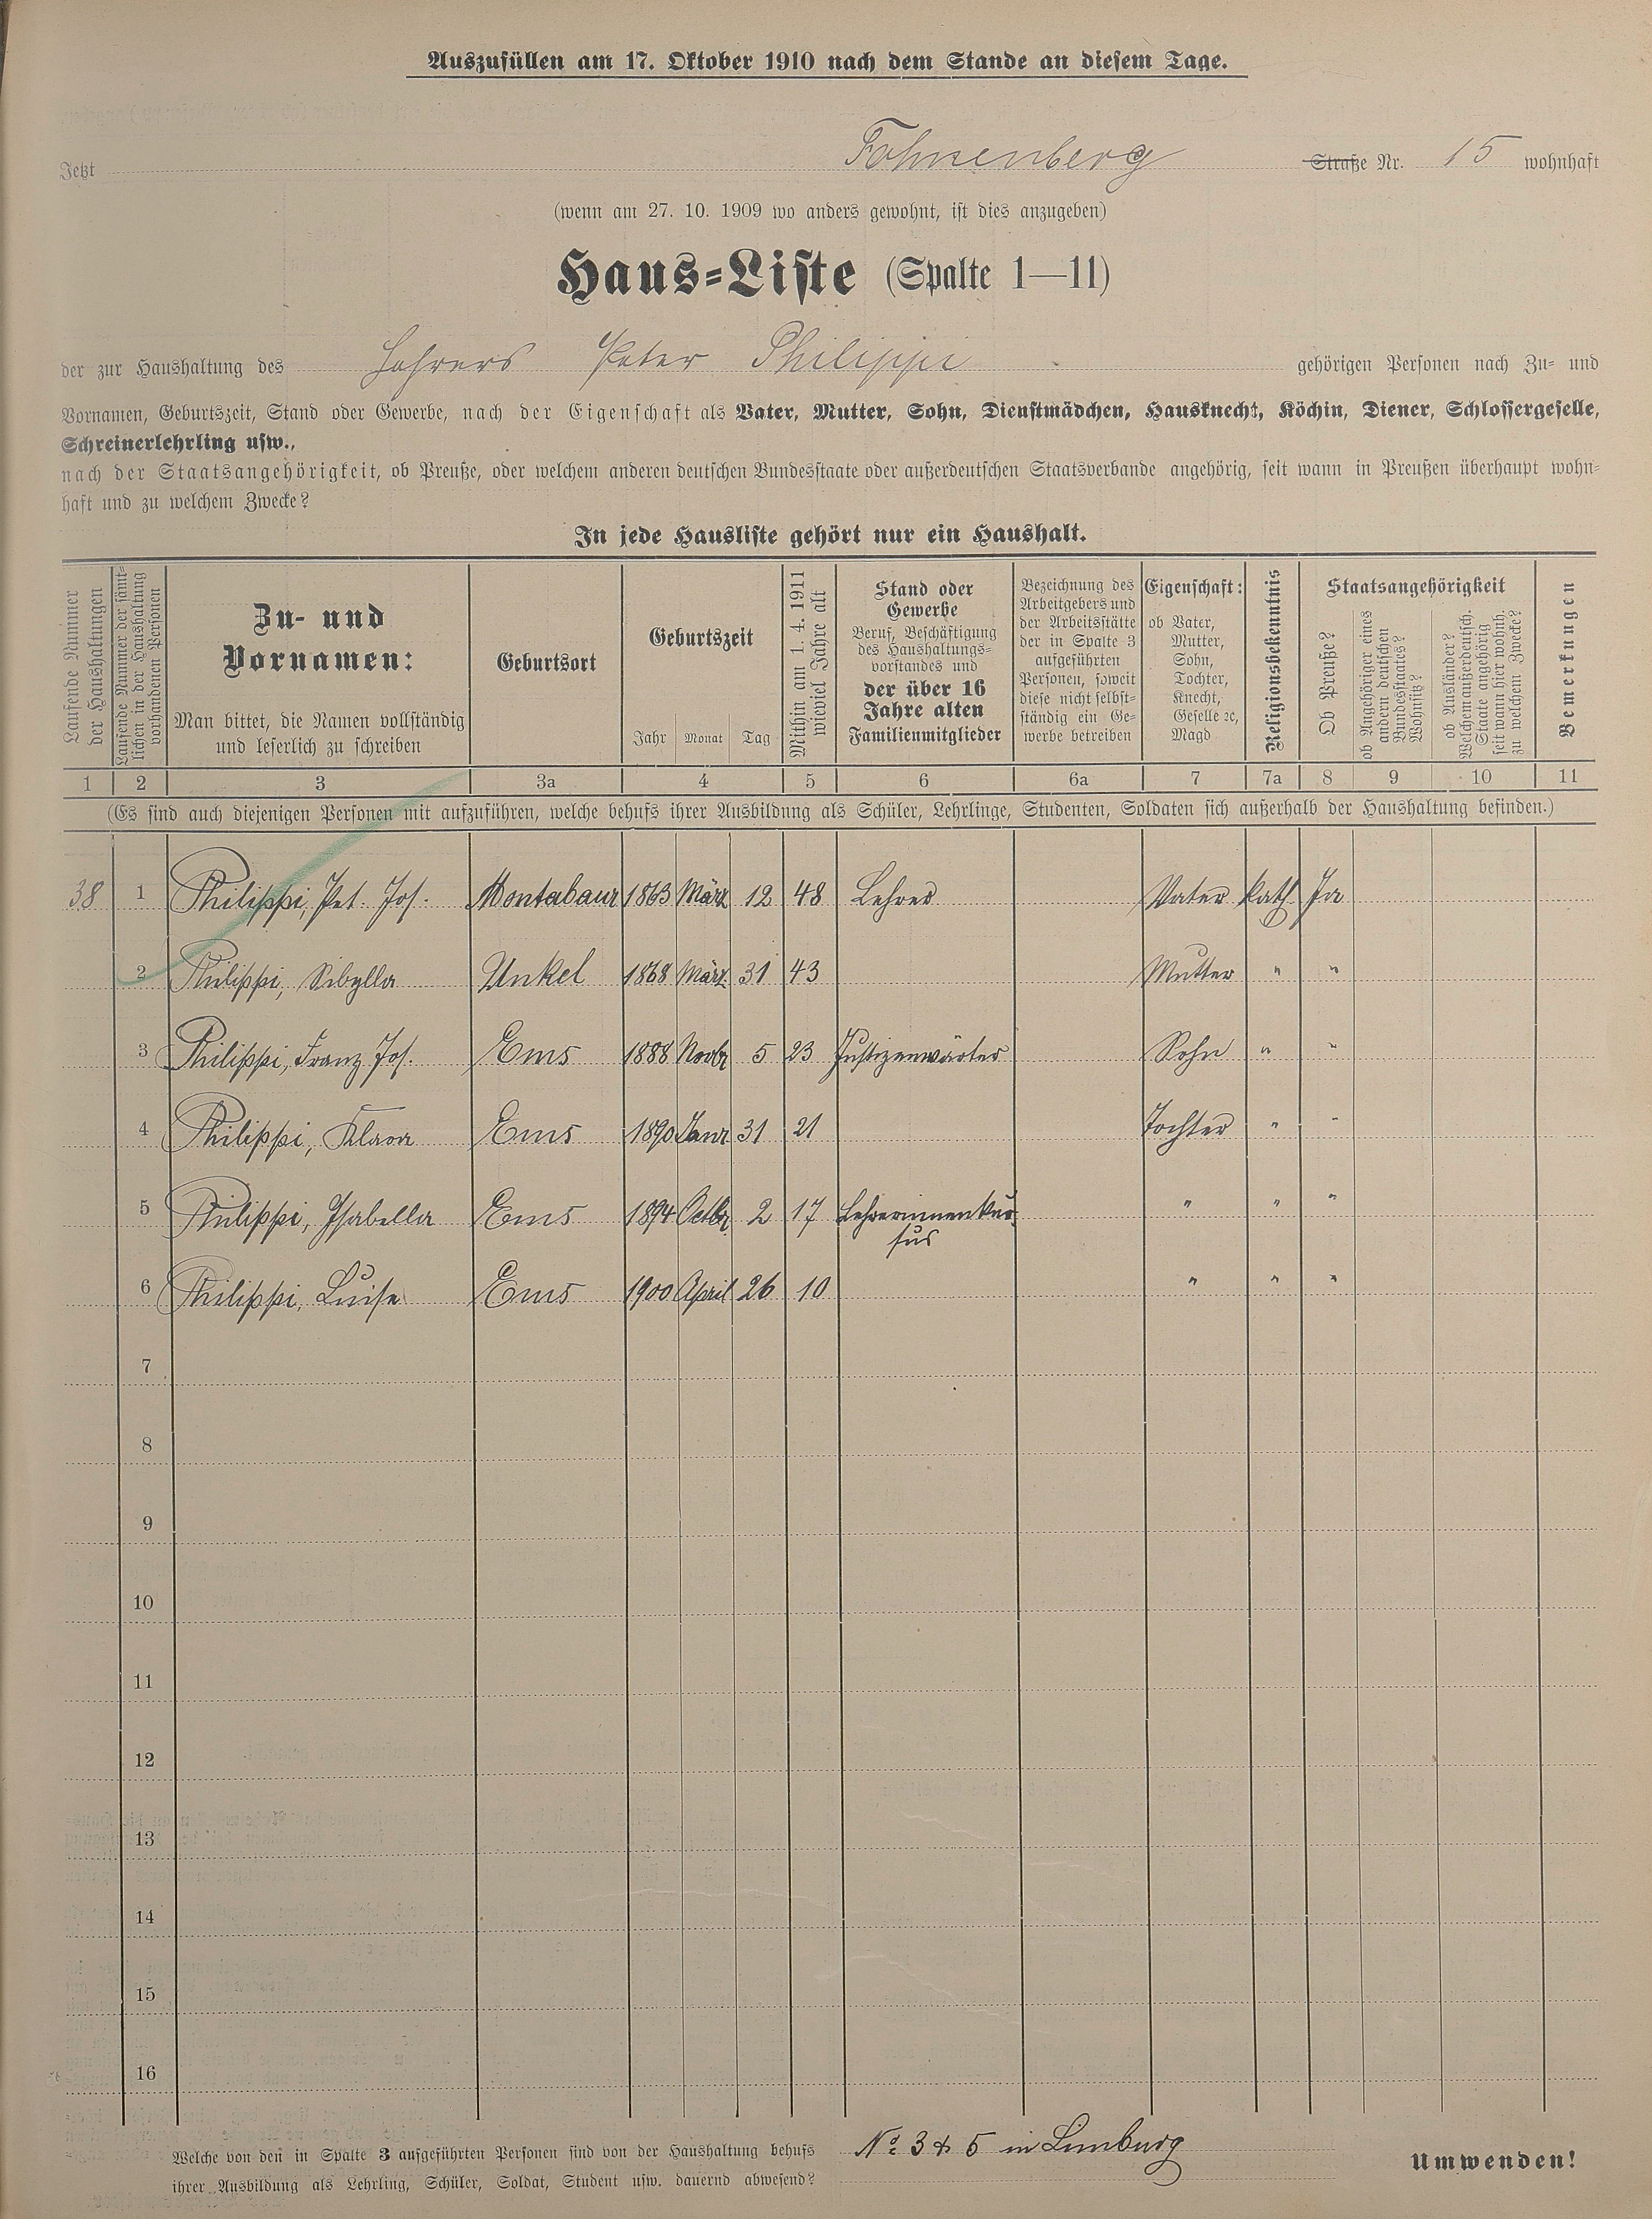 Auszufüllen am 17. Oktober 1910 nach dem Stande an diesem Tage.
Jetzt Fohnenberg Straße Nr. 15 wohnhaft
(wenn am 27. 10. 1909 wo anders gewohnt, ist dies anzugeben)
Haus-Liste (Spalte 1—11)
der zur Haushaltung des Lehrers Peter Philippi gehörigen Personen nach Zu- und
Vornamen, Geburtszeit, Stand oder Gewerbe, nach der Eigenschaft als Vater, Mutter, Sohn, Dienstmädchen, Hausknecht, Köchin, Diener, Schlossergeselle,
Schreinerlehrling usw.,
nach der Staatsangehörigkeit, ob Preuße, oder welchem anderen deutschen Bundesstaate oder außerdeutschen Staatsverbande angehörig, seit wann in Preußen überhaupt wohn-
haft und zu welchem Zwecke?
In jede Hausliste gehört nur ein Haushalt.
Laufende Nummer
der Haushaltungen
Laufende Nummer der sämt-
lichen in der Haushaltung
vorhandenen Personen
Zu- und
Vornamen:
Man bittet, die Namen vollständig
und leserlich zu schreiben
Geburtsort
Geburtszeit
Jahr Monat Tag
Mithin am 1. 4. 1911
wieviel Jahre alt
Stand oder
Gewerbe
Beruf, Beschäftigung
des Haushaltungs-
vorstandes und
der über 16
Jahre alten
Familienmitglieder
Bezeichnung des
Arbeitgebers und
der Arbeitsstätte
der in Spalte 3
aufgeführten
Personen, soweit
diese nicht selbst-
ständig ein Ge-
werbe betreiben
Eigenschaft:
ob Vater,
Mutter,
Sohn,
Tochter,
Knecht,
Geselle ꝛc,
Magd
Religionsbekenntnis
Staatsangehörigkeit
Ob Preuße?
ob Angehöriger eines
andern deutschen
Bundesstaates?
Wohnsitz?
ob Ausländer?
Welchem außerdeutsch.
Staate angehörig
seit wann hier wohnh.
zu welchem Zwecke?
Bemerkungen
1 2 3 3a 4 5 6 6a 7 7a 8 9 10 11
(Es sind auch diejenigen Personen mit aufzuführen, welche behufs ihrer Ausbildung als Schüler, Lehrlinge, Studenten, Soldaten sich außerhalb der Haushaltung befinden.)
38 1 Philippi, Pet. Jos. Montabaur 1863 März 12 48 Lehrer Vater kath. Ja
2 Philippi, Sibylla Unkel 1868 März 31 43 Mutter " "
3 Philippi, Franz Jos. Ems 1888 Novbr 5 23 Justizanwärter Sohn " "
4 Philippi, Klara Ems 1890 Janr 31 21 Tochter " "
5 Philippi, Isabella Ems 1894 Octbr 2 17 Lehrerinnenkur- " " "
sus
6 Philippi, Luise Ems 1900 April 26 10 " " "
7
8
9
10
11
12
13
14
15
16
Welche von den in Spalte 3 aufgeführten Personen sind von der Haushaltung behufs No 3 & 5 in Limburg
ihrer Ausbildung als Lehrling, Schüler, Soldat, Student usw. dauernd abwesend?
Umwenden!